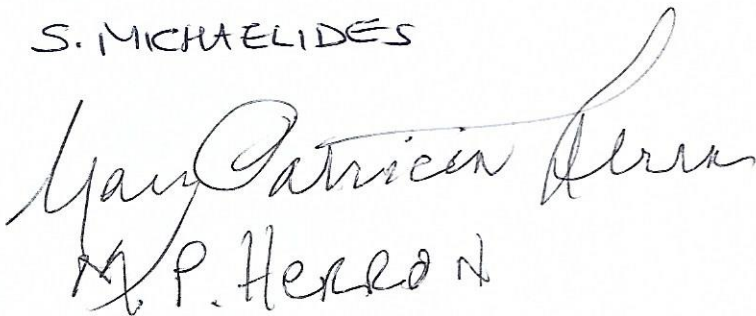 S. MICHAELIDES
Mary Patricia Herron
M. P. HERRON